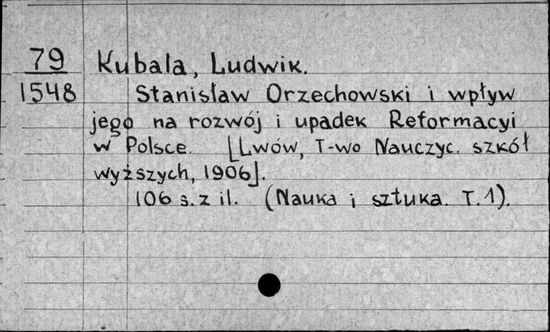 79
1548
Kubala, Ludwik.
Stanisław Orzechowski i wpływ
jego na rozwój i upadek Reformacyi
w Polsce. [Lwów, T-wo Nauczyc. szkół
wyższych, 1906].
106 s. z il. (Nauka i sztuka. T.1).